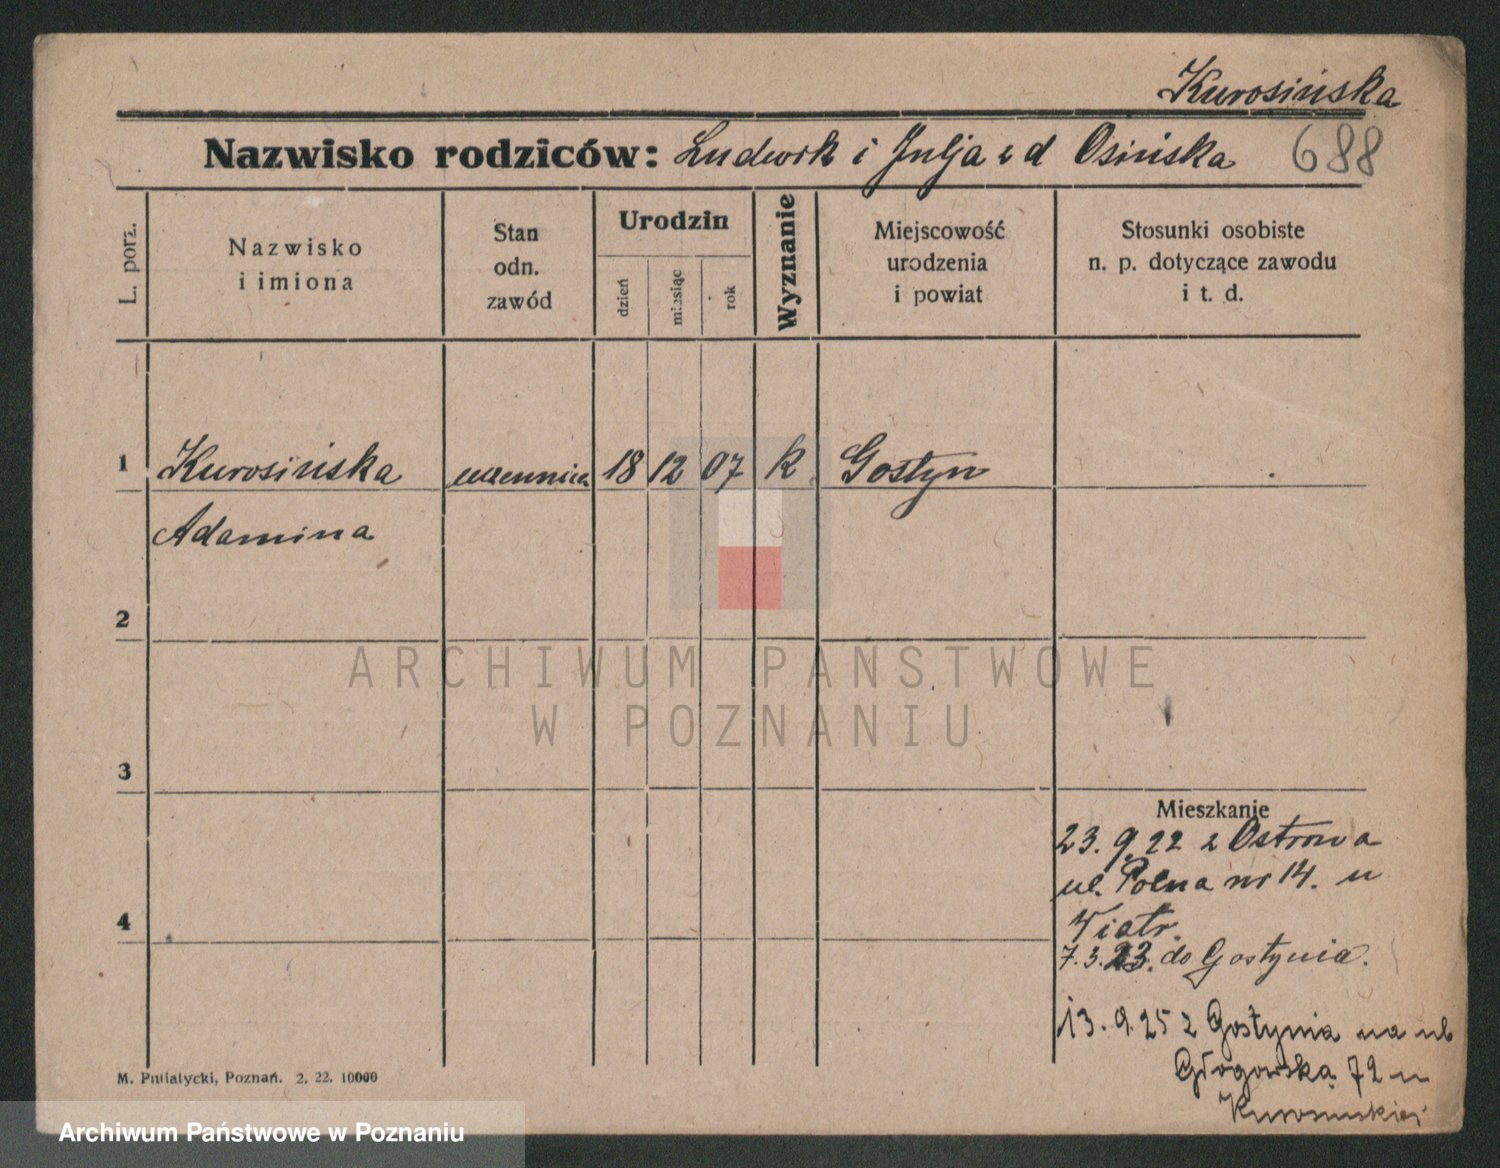 Kurosińska
Nazwisko rodziców: Ludwik i Julja z d Osińska 688
L. porz.
Nazwisko
i imiona
Stan
odn.
zawód
Urodzin
dzień
miesiąc
rok
Wyznanie
Miejscowość
urodzenia
i powiat
Stosunki osobiste
n. p. dotyczące zawodu
i t. d.
1 Kurosińska uczennica 18 12 07 k Gostyn
Adamina
2
ARCHIWUM PAŃSTWOWE
W POZNANIU
3
Mieszkanie
23. 9. 22 z Ostrowa
ul. Polna nr 14. u
4
Wiatr.
7. 3. 23. do Gostynia.
13. 9. 25 z Gostynia na ul
Głogowska 72 u
Kurosińskiej
M. Putiatycki, Poznań. 2. 22. 10000
Archiwum Państwowe w Poznaniu